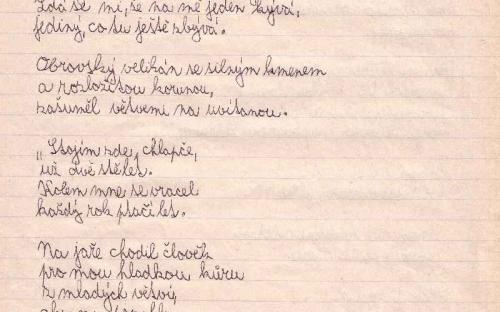 Zdá se mi, že na mě jeden kývá,
jediný, co tu ještě zbývá.
Obrovský velikán se silným kmenem
a rozložitou korunou,
zašuměl větvemi na uvítanou.
„Stojím zde, chlapče,
už dvě stě let.
Kolem mne se vracel
každý rok ptačí let.
Na jaře chodil člověk
pro mou hladkou kůru
z mladých větví,
aby